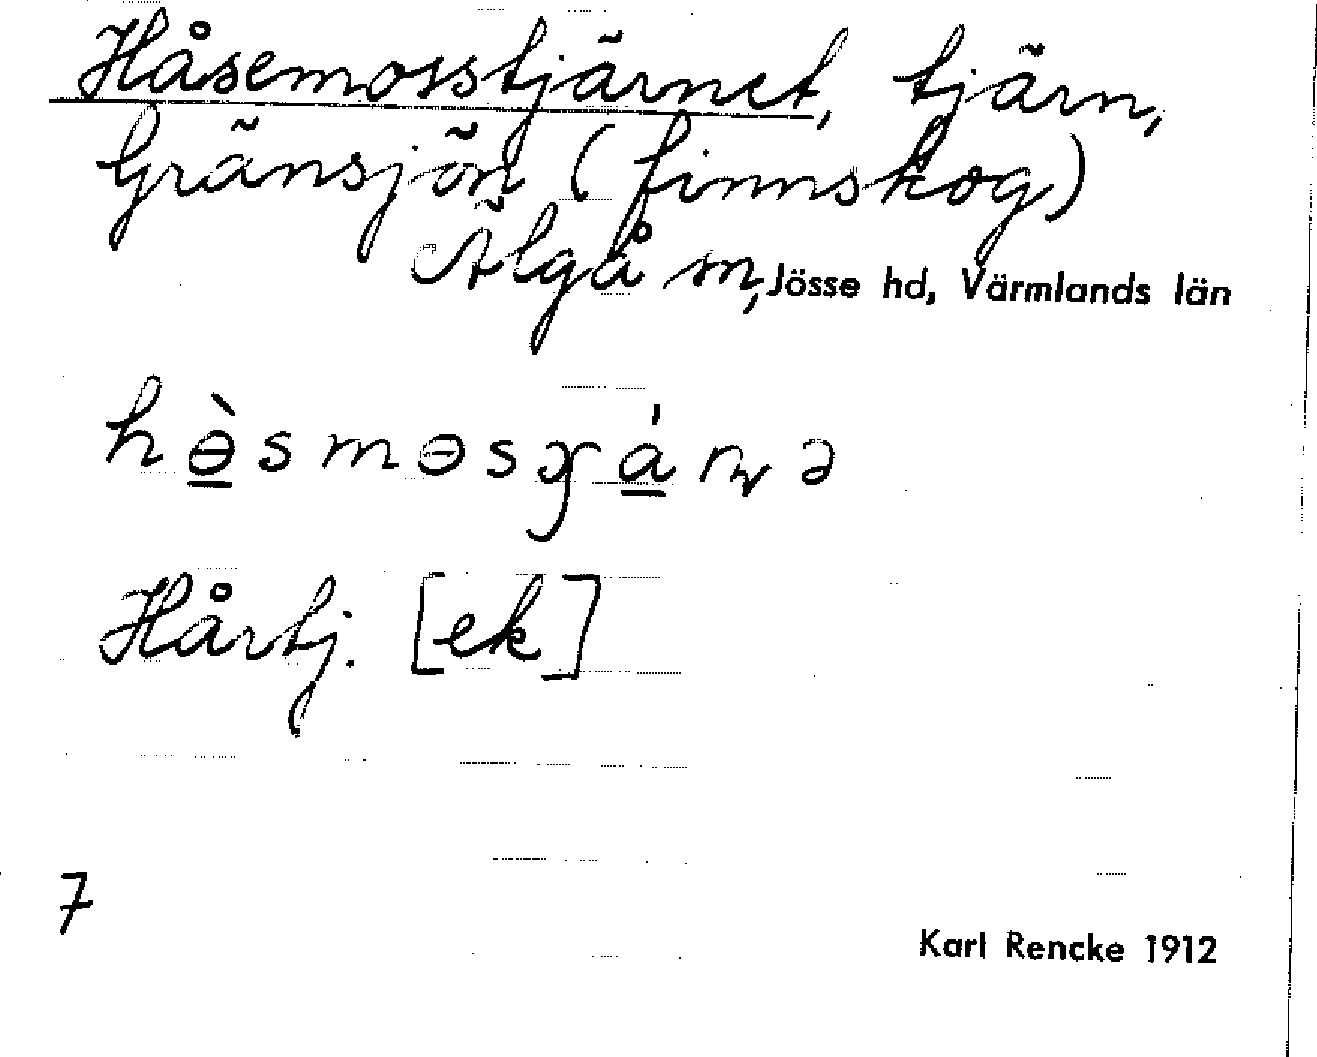 Håsemosstjärnet, tjärn,
Gränsjön (finnskog)
Älgå sn, Jösse hd, Värmlands län
hɵ̀smɵsɣánə
Hårtj. [ek]
7
Karl Rencke 1912